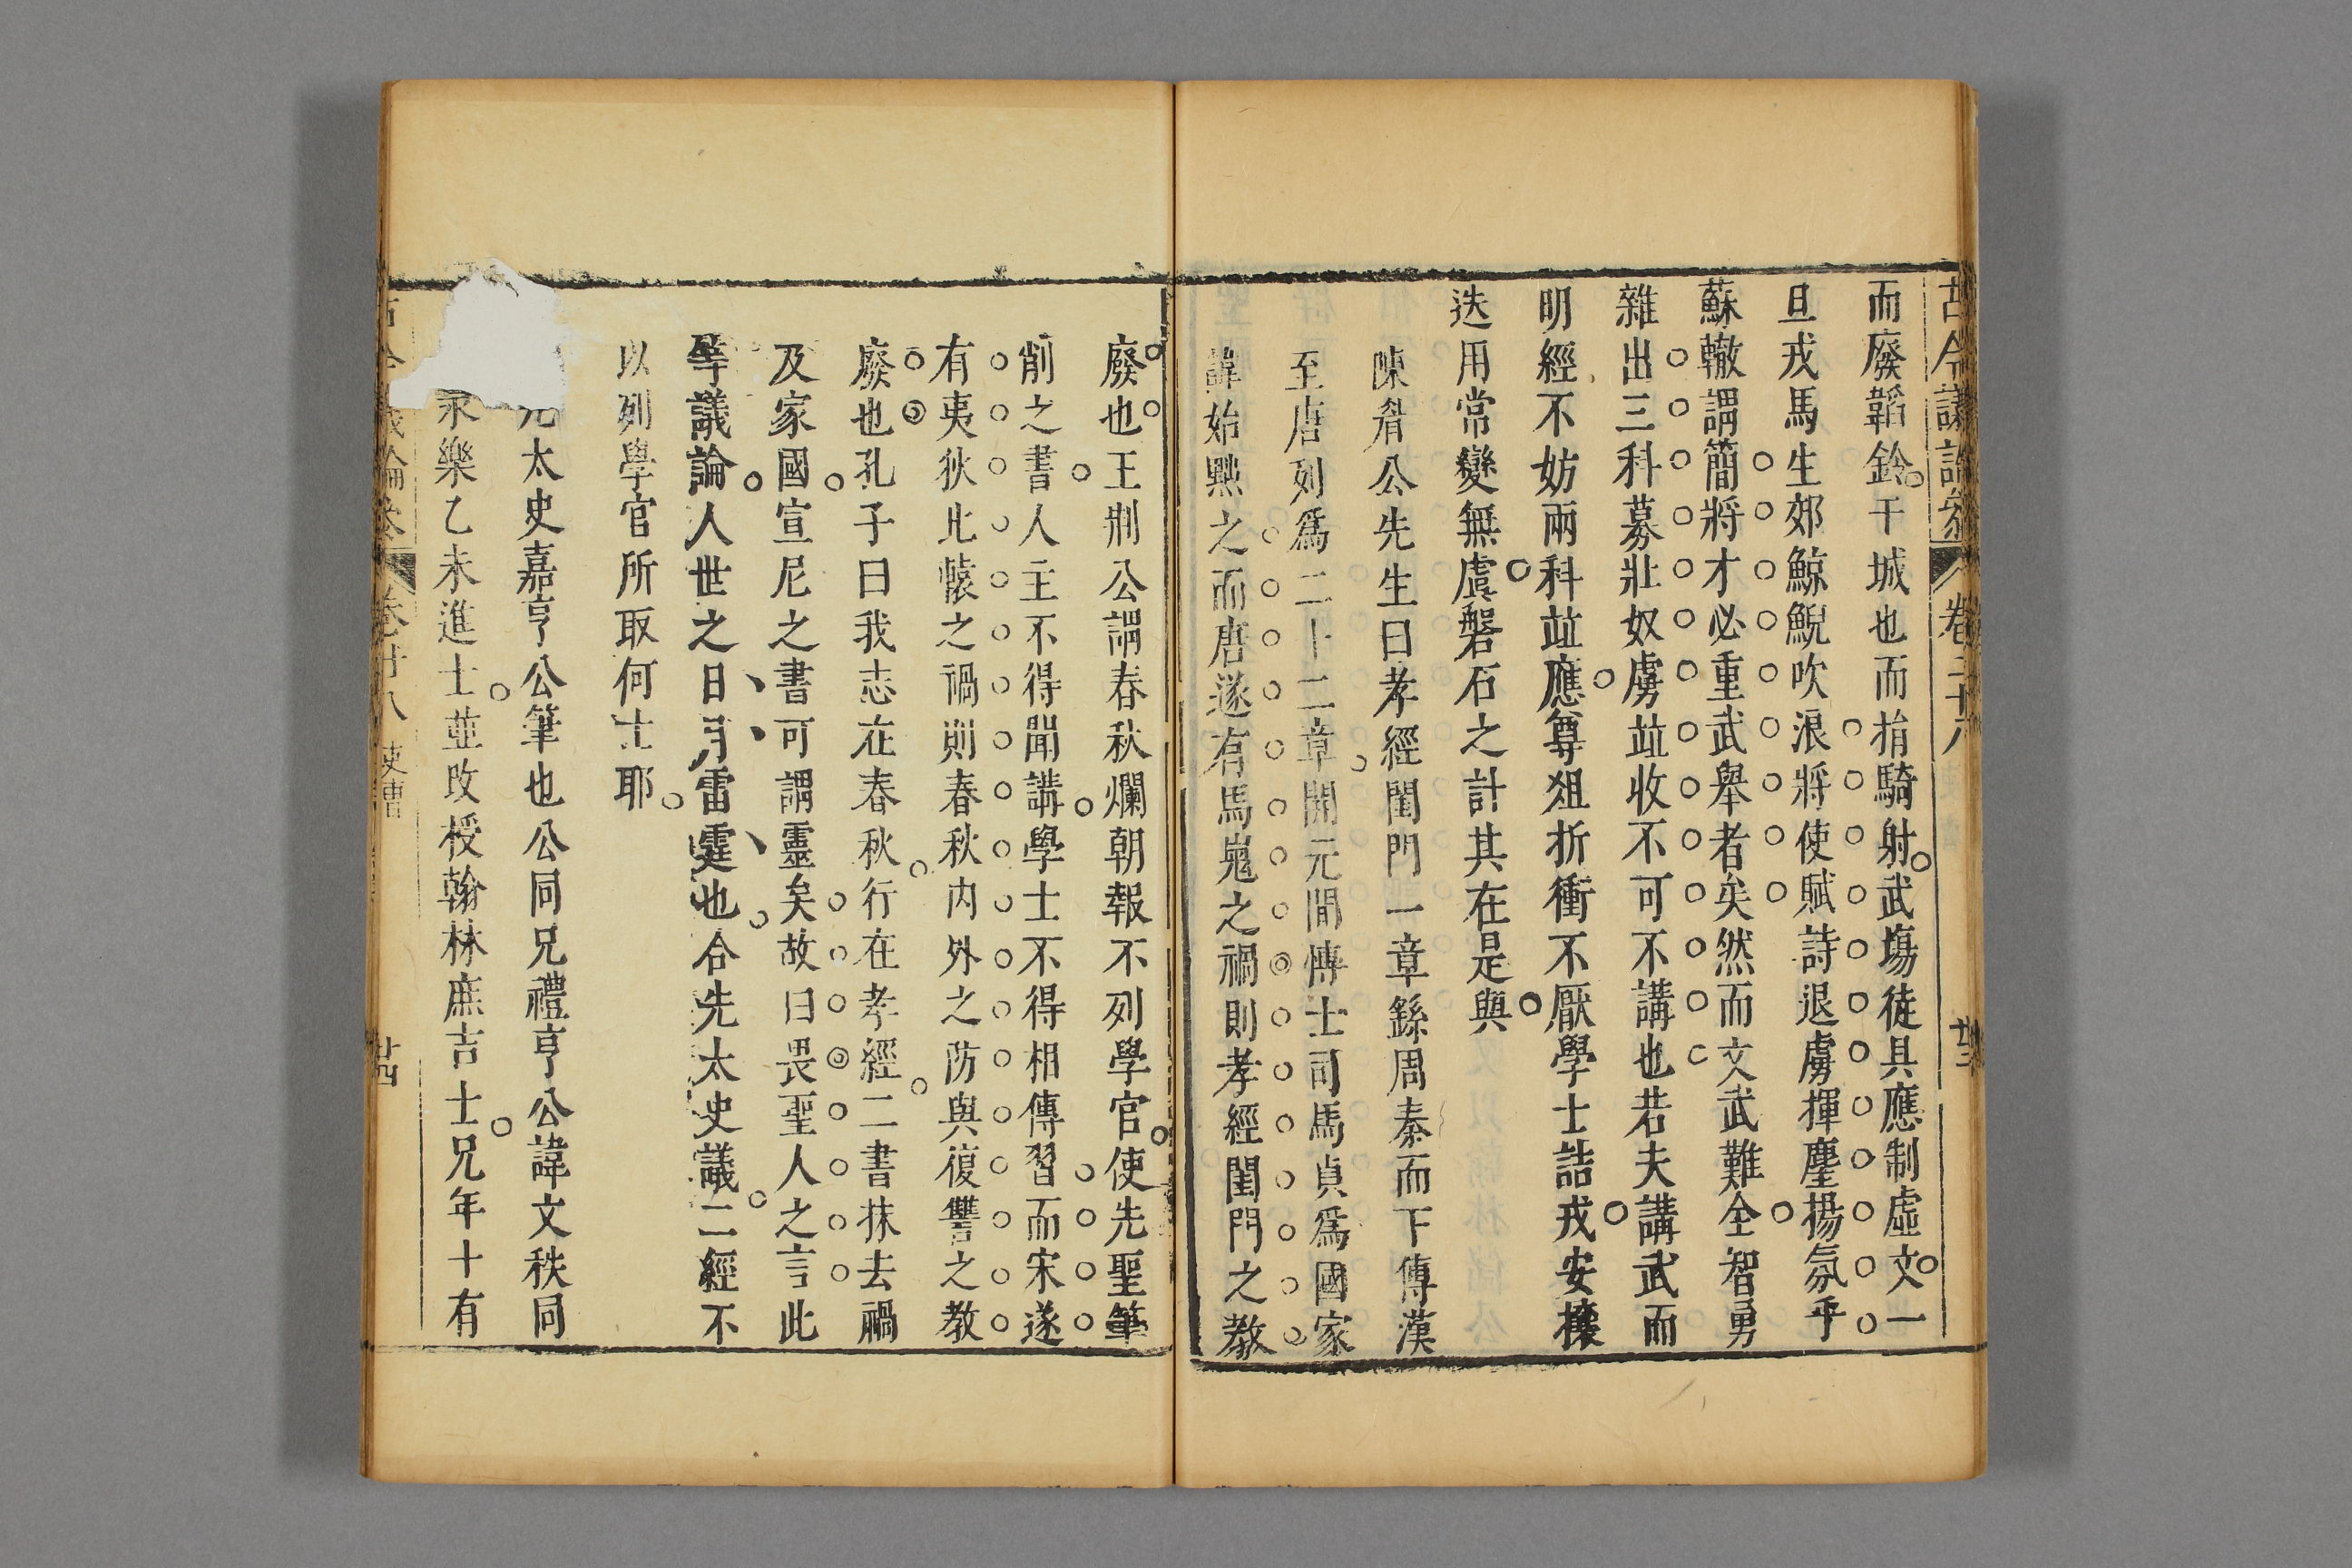 古今議論參 卷二十八 廿三
而廢韜鈐干城也而揹騎射武塲徒具應制虛文一
旦戎馬生郊鯨鯢吹浪將使賦詩退虜揮麈揚氛乎
蘇轍謂簡將才必重武舉者矣然而文武難全智勇
雜出三科募壯奴虜竝收不可不講也若夫講武而
明經不妨兩科竝應尊俎折衝不厭學士詰戎安攘
迭用常變無虞磐石之計其在是與
陳眉公先生曰孝經閨門一章繇周秦而下傳漢
至唐列爲二十二章開元間博士司馬貞爲國家
諱始黜之而唐遂有馬嵬之禍則孝經閨門之教
廢也王荆公謂春秋爛朝報不列學官使先聖筆
削之書人主不得聞講學士不得相傳習而宋遂
有夷狄北轅之禍則春秋内外之防與復讐之教
廢也孔子曰我志在春秋行在孝經二書抹去禍
及家國宣尼之書可謂靈矣故曰畏聖人之言此
等議論人世之日月雷霆也合先太史議二經不
以列學官所取何士耶
太史嘉亨公筆也公同兄禮亨公諱文秩同
永樂乙未進士並改授翰林庶吉士兄年十有
古今議論參 卷廿八 吏曹 廿四